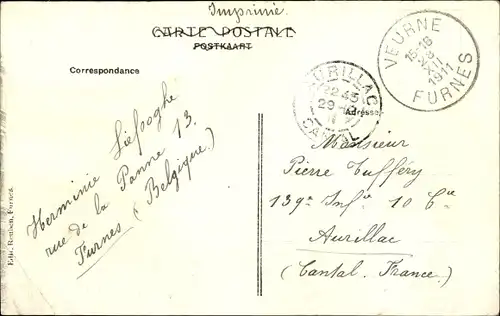 Imprimé.
CARTE POSTALE
POSTKAART
Correspondance
Adresse
VEURNE
15-16
28
XII
1911
FURNES
AURILLAC
22 45
29
11
CANTAL
Herminie
rue de la Panne 13.
Furnes (Belgique)
Monsieur
Pierre Tufféry
139e Infie 10 Cie
Aurillac
(Cantal. France.)
Edit. Furnes.